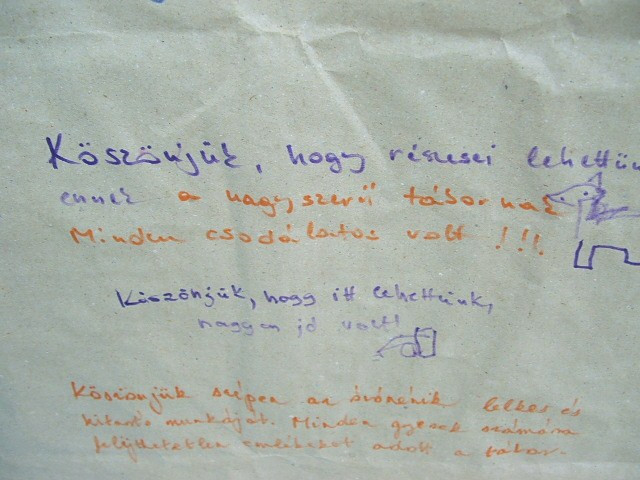 Köszönjük, hogy részesei lehettün
ennek a nagyszerű tábornak
Minden csodálatos volt !!!
Köszönjük, hogy itt lehettünk,
nagyon jó volt!
Köszönjük szépen az óvónénik lelkes és
kitartó munkáját. Minden gyerek számára
felejthetetlen emlékeket adott a tábor.